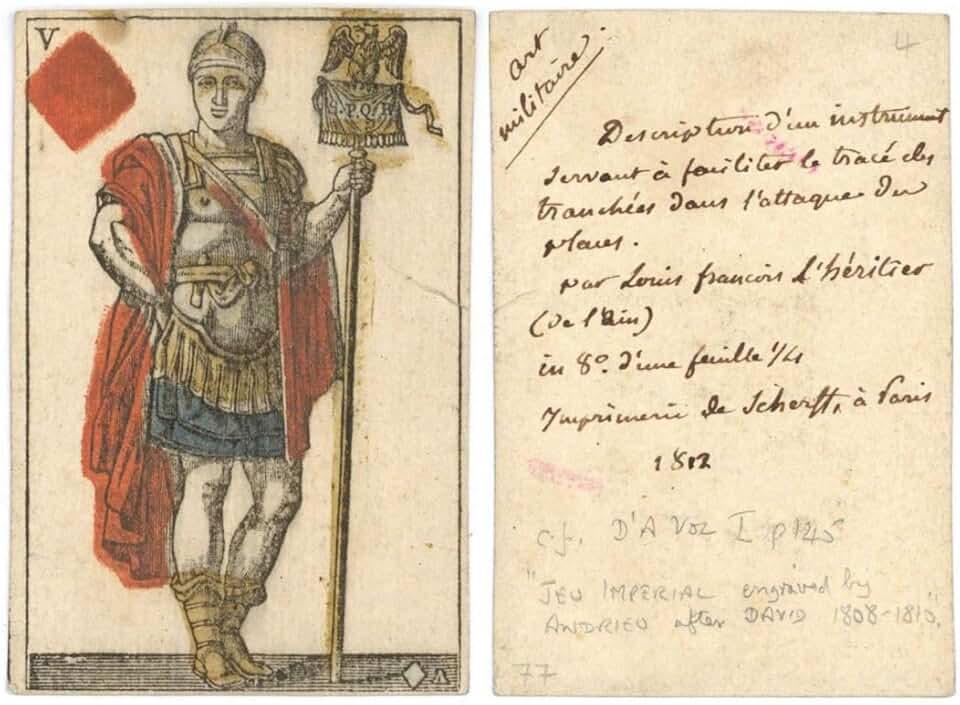 V
S.P.Q.R
V
4
art
militaire.
Description d'un instrument
servant à faciliter le tracé des
tranchées dans l'attaque des
places.
par Louis françois L'héritier
(de l'ain)
in 8º. d'une feuille 1/4
Imprimerie de Scherff, à Paris
1812
c.f. D'A VOL I p 145
"JEU IMPERIAL engraved by
ANDRIEU after DAVID 1808-1810."
77